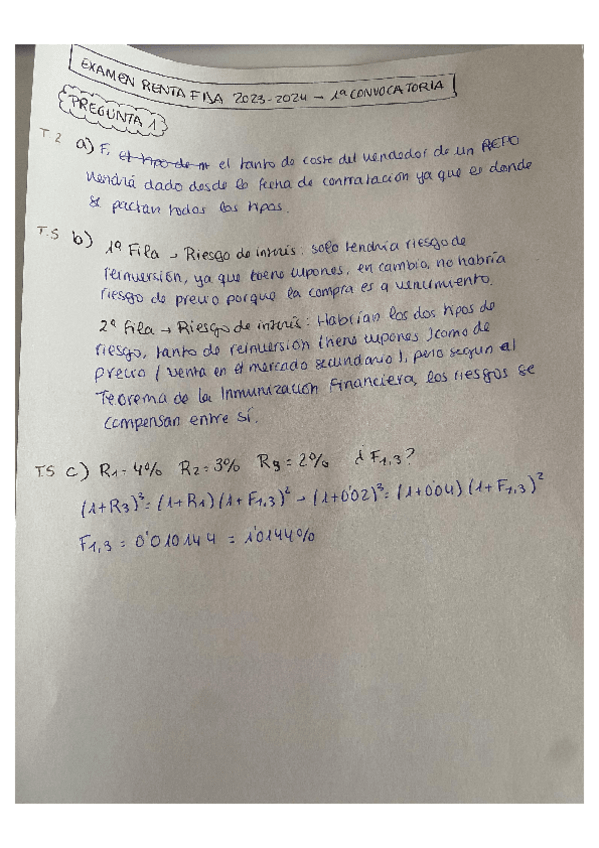 EXAMEN RENTA FIJA 2023-2024 - 1ª CONVOCATORIA
PREGUNTA 1
T.2 a) F, el tipo de in el tanto de coste del vendedor de un REPO
vendrá dado desde la fecha de contratación ya que es donde
se pactan todos los tipos.
T.5 b) 1ª Fila → Riesgo de interés: solo tendría riesgo de
reinversión, ya que tiene cupones, en cambio, no habría
riesgo de precio porque la compra es a vencimiento.
2ª Fila → Riesgo de interés: Habrían los dos tipos de
riesgo, tanto de reinversión (tiene cupones) como de
precio (venta en el mercado secundario), pero según el
Teorema de la Inmunización Financiera, los riesgos se
compensan entre sí.
T.5 c) R1=4% R2=3% R3=2% ¿F1,3?
(1+R3)³=(1+R1)(1+F1,3)² → (1+0'02)³=(1+0'04)(1+F1,3)²
F1,3 = 0'010144 = 1'0144%